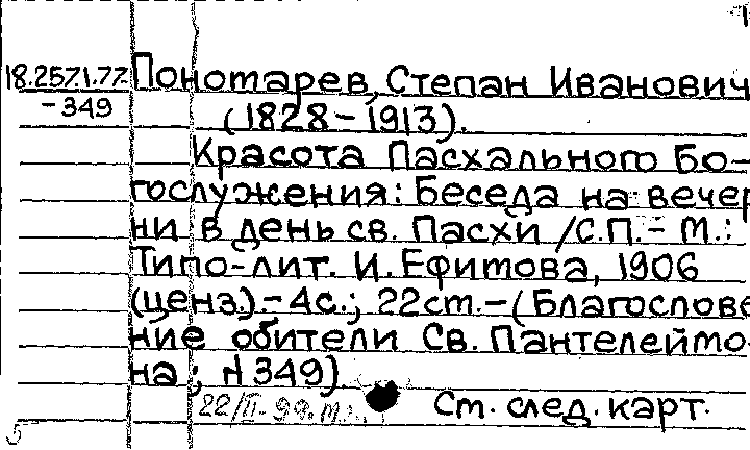 18.257.1.77. Пономарев, Степан Иванович
-349 (1828-1913).
Красота Пасхального Бо-
гослужения: Беседа на вечер
ни в день св. Пасхи /С.П.- М.:
Типо-лит. И. Ефимова, 1906
(ценз.).- 4с.; 22см.- (Благослове
ние обители Св. Пантелеймо
на; N 349).
22/II-99.
См. след. карт.
5